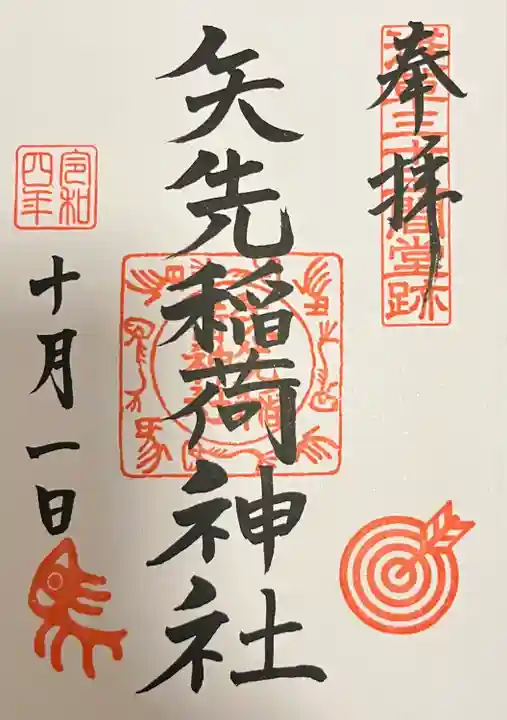 奉拝
浅草三十三間堂跡
矢先稲荷神社
令和四年
十月一日